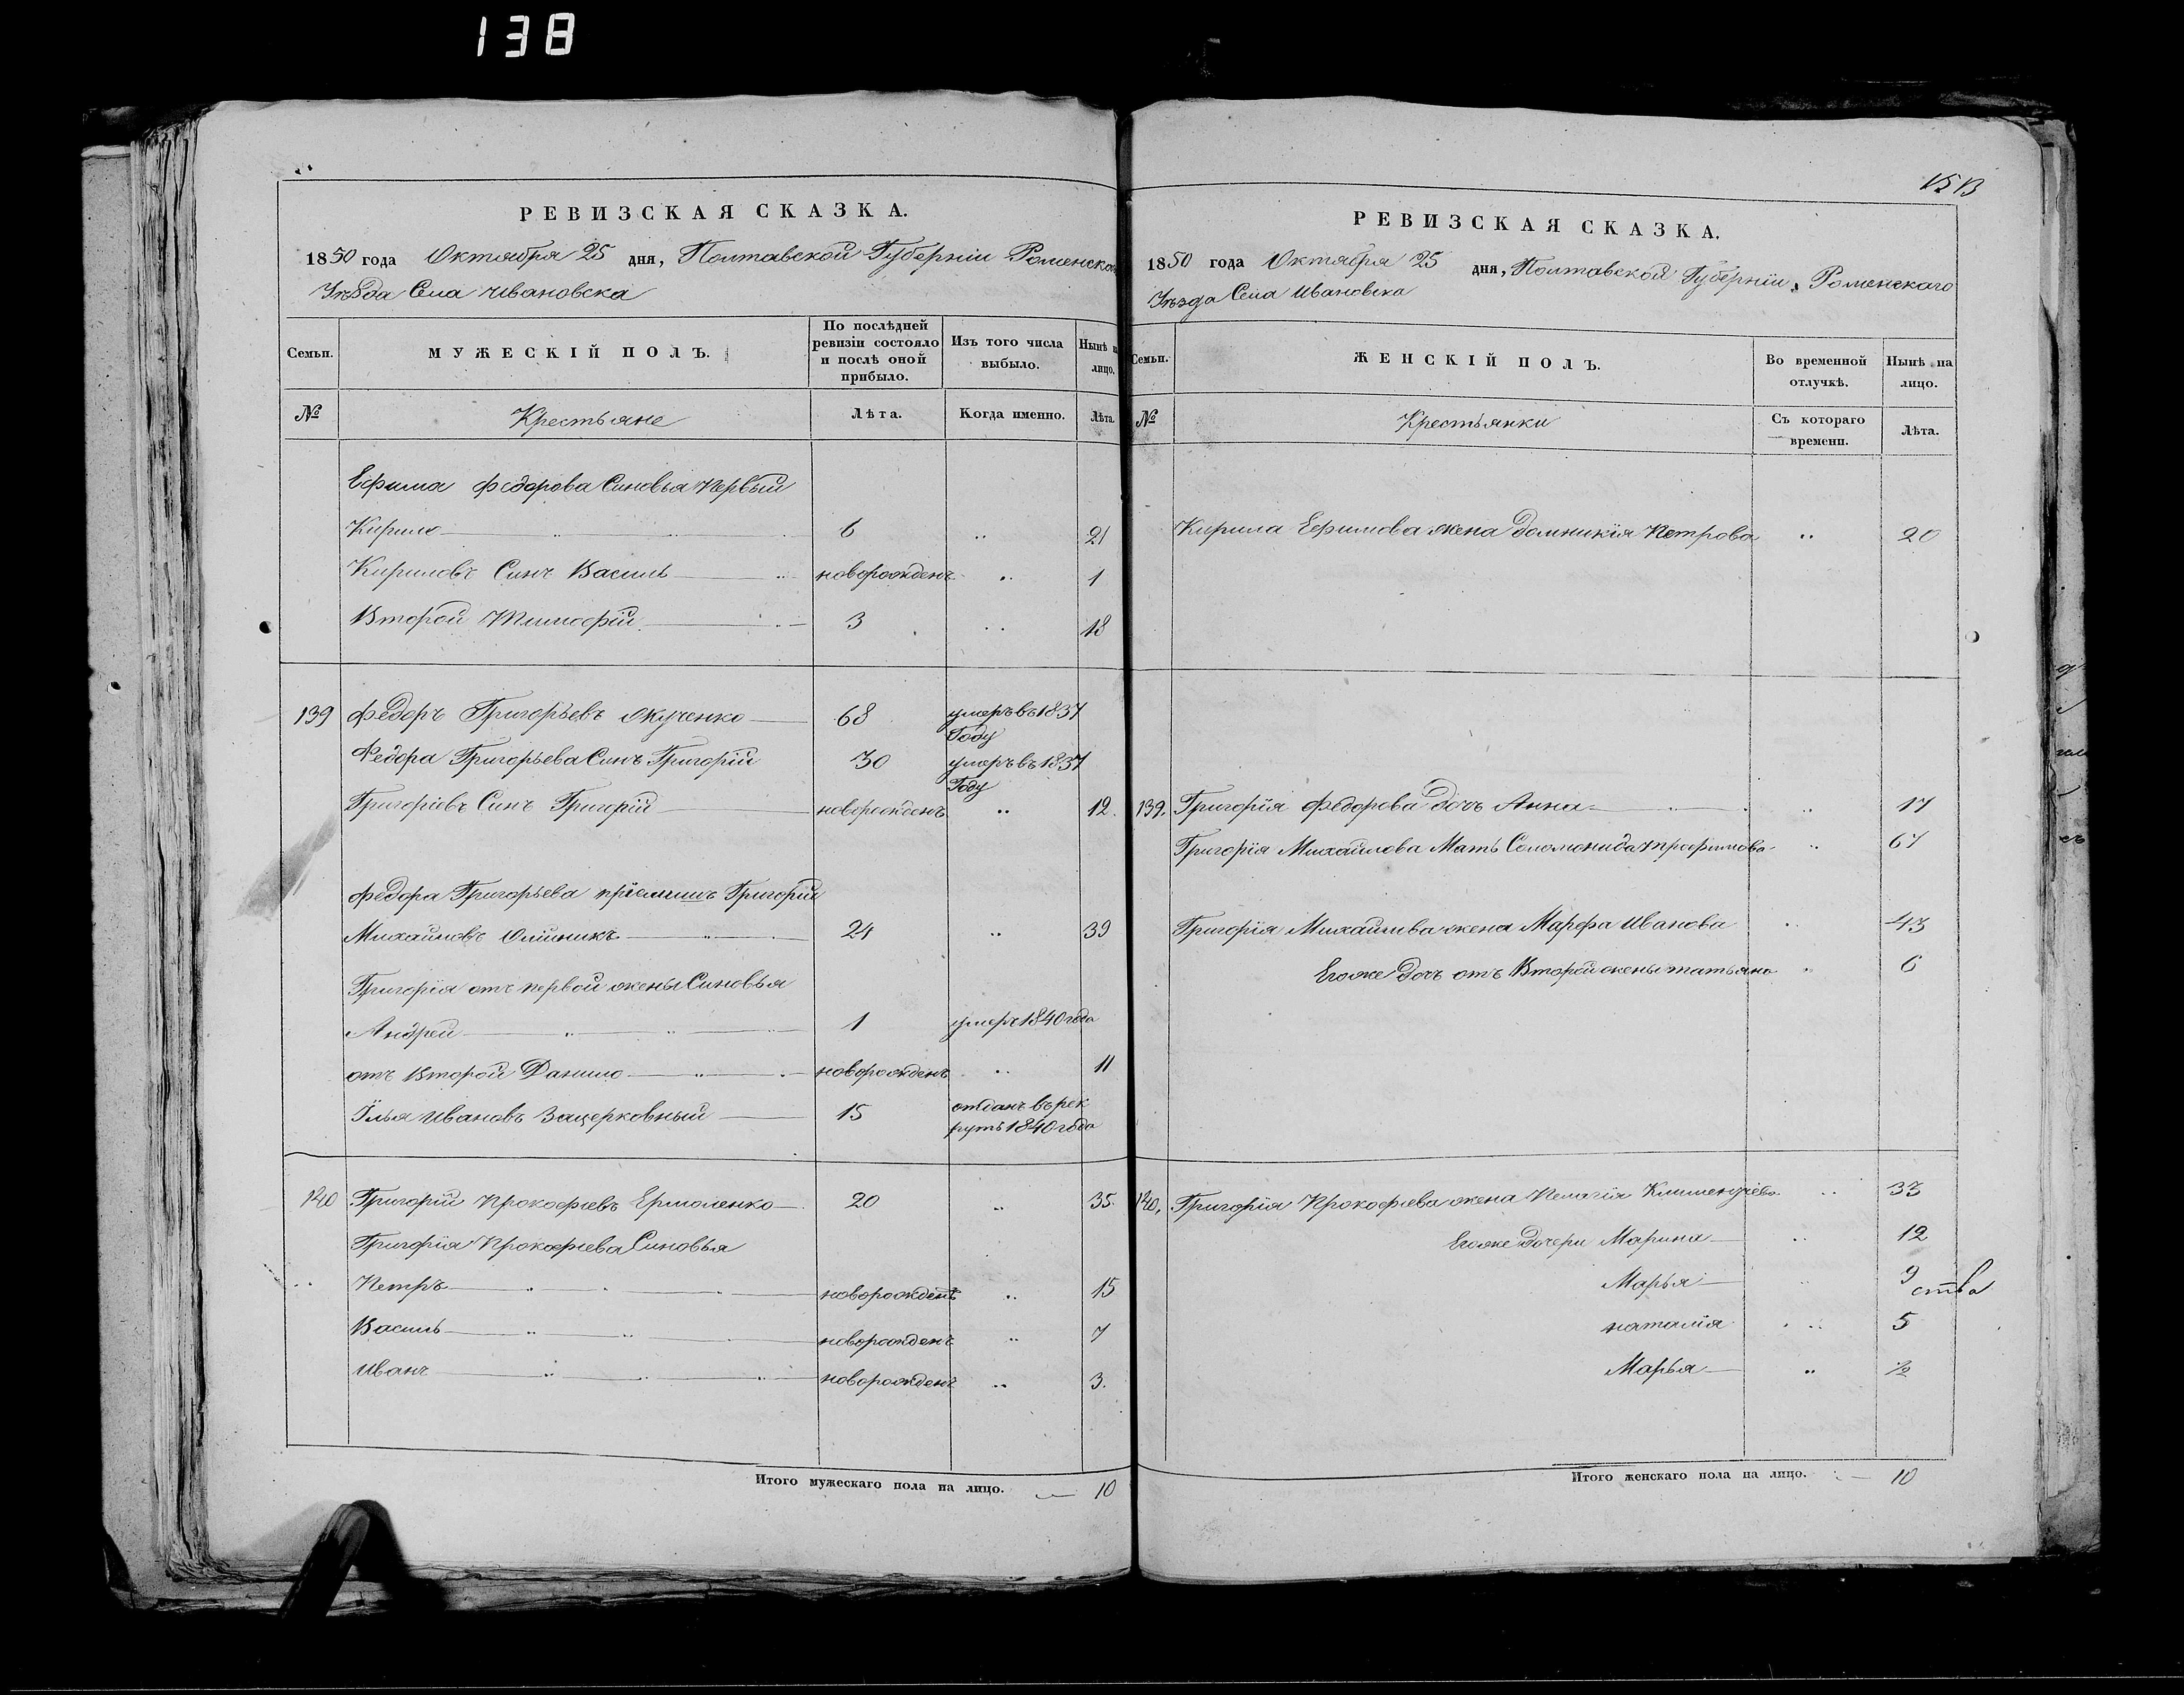 138
РЕВИЗСКАЯ СКАЗКА.
1850 года Октября 25 дня, Полтавской Губерніи Роменска
Уѣзда Села Ивановска
Семьи. МУЖЕСКІЙ ПОЛЪ. По послѣдней ревизіи состояло и послѣ оной прибыло. Изъ того числа выбыло. Нынѣ н лицо.
№ Крестьяне Лѣта. Когда именно. Лѣта.
Ефима Федорова Синовья Первый
Кирило 6 21
Кириловъ Синъ Василь новорожденъ 1
Второй Тимофій 3 18
139 Федоръ Григорьевъ Жученко 68 умеръ въ 1837 Году
Федора Григорьева Синъ Григорій 30 умеръ въ 1837 Году
Григоріевъ Синъ Григорій новорожденъ 12.
Федора Григорьева пріемишъ Григорій
Михайловъ Олійникъ 24 39
Григорія отъ первой жены Синовья
Андрей 1 умеръ 1840 года
отъ Второй Данило новорожденъ 11
Илья Ивановъ Зацерковный 15 отданъ въ рек
руты 1840 года
140 Григорій Прокофіевъ Ермоленко 20 35.
Григорія Прокофіева Синовья
Петръ новорожденъ 15
Василь новорожденъ 7
Иванъ новорожденъ 3.
Итого мужескаго пола на лицо. 10
РЕВИЗСКАЯ СКАЗКА.
1850 года Октября 25 дня, Полтавской Губерніи, Роменскаго
Уѣзда Села Ивановска
Семьи. ЖЕНСКІЙ ПОЛЪ. Во временной отлучкѣ. Нынѣ на лицо.
№ Крестьянки Съ котораго времени. Лѣта.
Кирила Ефимова жена Домникія Петрова 20
139. Григорія Федорова дочь Анна 17
Григорія Михайлова Мать Соломонида Трофимова 67
Григорія Михайлова жена Марфа Иванова 43
Егоже дочь отъ Второй жены татьяна 6
140. Григорія Прокофіева жена Пелагія Климентіева 33
Егоже дочери Марина 12
Марья 9
ства
наталія 5
Марья ½
Итого женскаго пола на лицо. 10